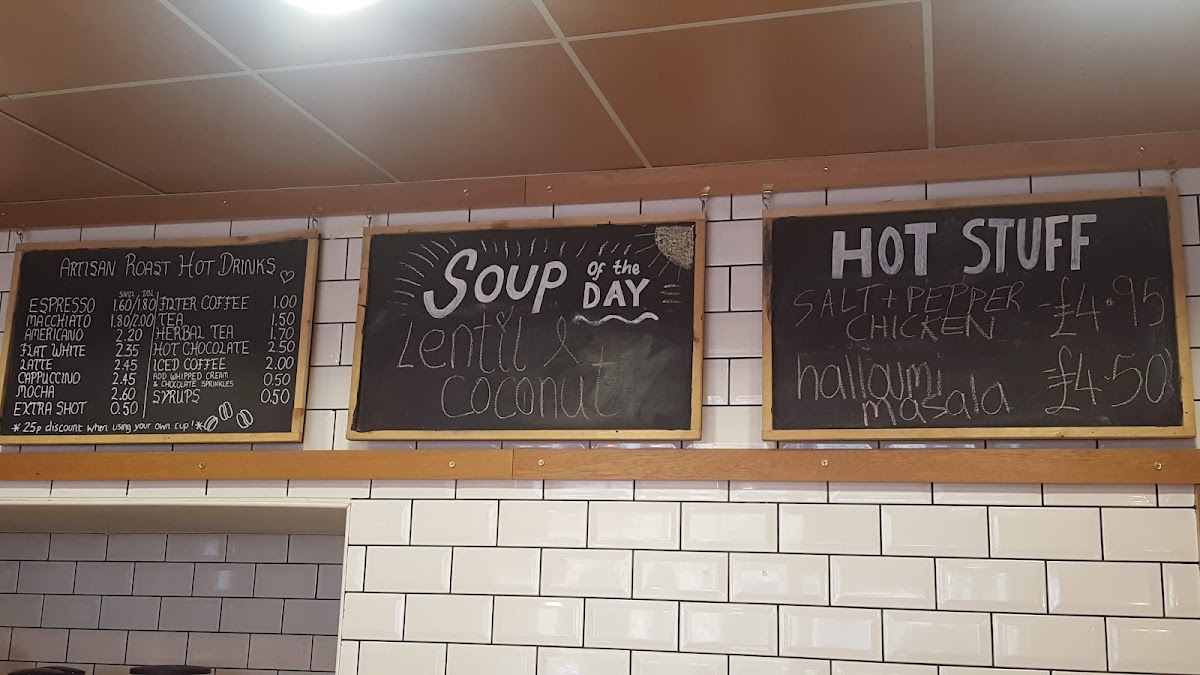 ARTISAN ROAST HOT DRINKS
SNGL DBL
ESPRESSO 1.60/1.80
MACCHIATO 1.80/2.00
AMERICANO 2.20
FLAT WHITE 2.35
LATTE 2.45
CAPPUCCINO 2.45
MOCHA 2.60
EXTRA SHOT 0.50
FILTER COFFEE 1.00
TEA 1.50
HERBAL TEA 1.70
HOT CHOCOLATE 2.50
ICED COFFEE 2.00
ADD WHIPPED CREAM
& CHOCOLATE SPRINKLES 0.50
SYRUPS 0.50
* 25p discount when using your own cup! *
SOUP OF the DAY
Lentil &
coconut
HOT STUFF
SALT + PEPPER
CHICKEN -£4.95
halloumi
masala £4.50